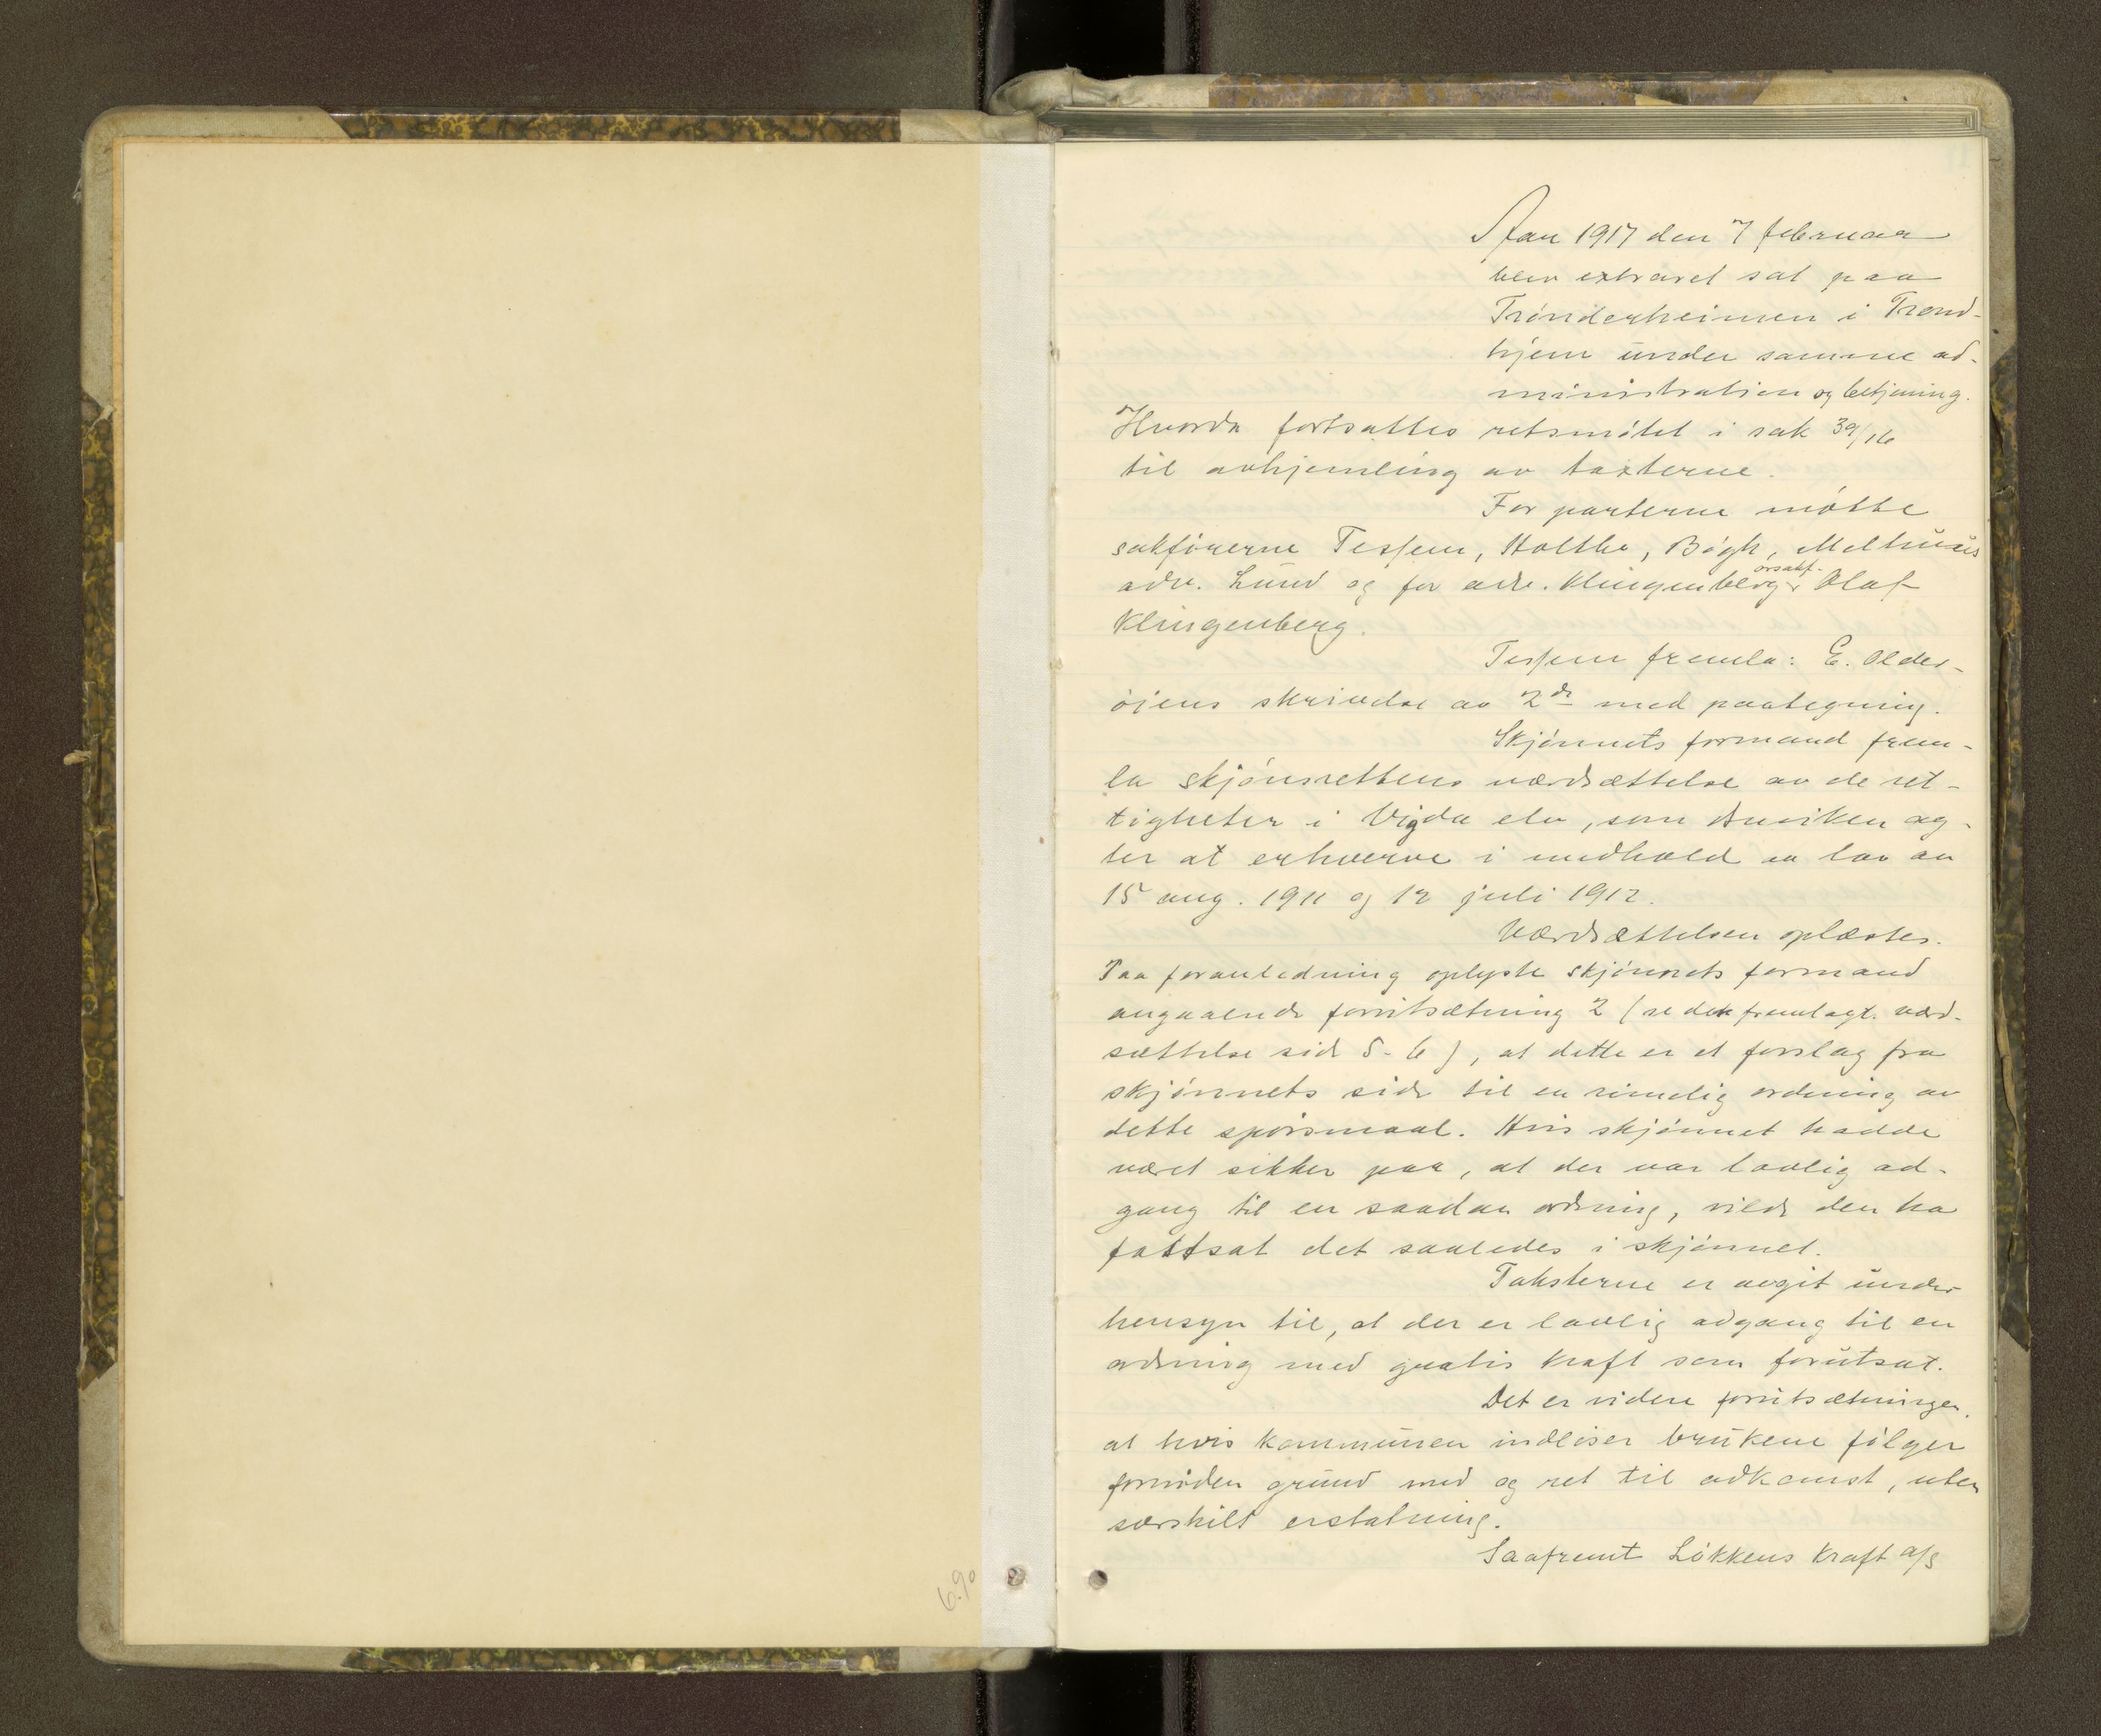 Aar 1917 den 7 februar
blev extraret sat paa
Trønderheimen i Trond-
hjem under samme ad-
ministration og betjening.
Hvorda fortsattes retsmøtet i sak 39/16
til avhjemling av taxterne.
For parterne møtte
sakførerne Tessem, Holthe, Bøgh, Melhuus
adv. Lund og for adv. Klingenberg orsakf. Olaf
Klingenberg.
Tessem fremla: E. Older-
øiens skrivelse av 2de med paategning.
Skjønnets formand frem-
la skjønsrettens værdsættelse av de ret-
tigheter i Vigda elv, som Buviken ag-
ter at erhverve i medhold av lov av
15 aug. 1911 og 12 juli 1912.
Værdsættelsen oplæstes.
Paa foranledning oplyste skjønnets formand
angaaende forutsætning 2 (se den fremlagt. værd-
sættelse side 5-6), at dette er et forslag fra
skjønnets side til en rimelig ordning av
dette spørsmaal. Hvis skjønnet hadde
været sikker paa, at der var lovlig ad-
gang til en saadan ordning, vilde den ha
fastsat det saaledes i skjønnet.
Taksterne er avgit under
hensyn til, at der er lovlig adgang til en
ordning med gratis kraft som forutsat.
Det er videre forutsætningen,
at hvis kommunen indløser brukene følger
fornøden grund med og ret til adkomst, uten
særskilt erstatning.
Saafremt Løkkens Kraft a/s
6.90